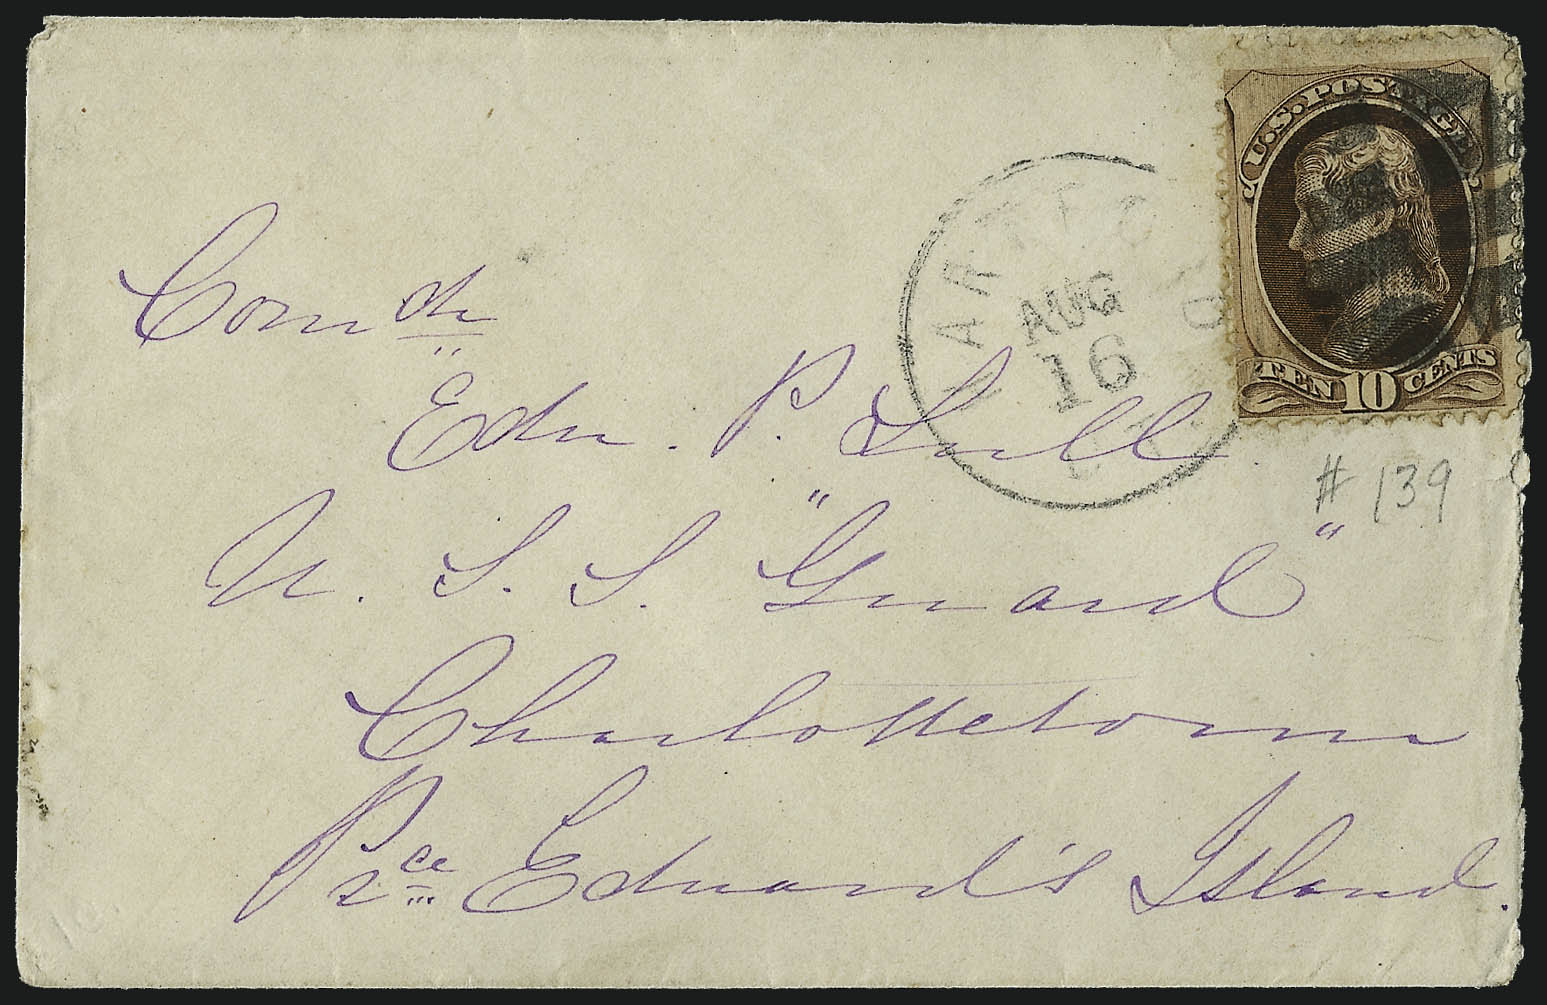 U.S. POSTAGE
TEN 10 CENTS
HARTFORD
AUG
16
CT.
# 139
Comdr
Edw. P. Lull
U. S. S. "Guard"
Charlottetown
Prce Edward's Island.